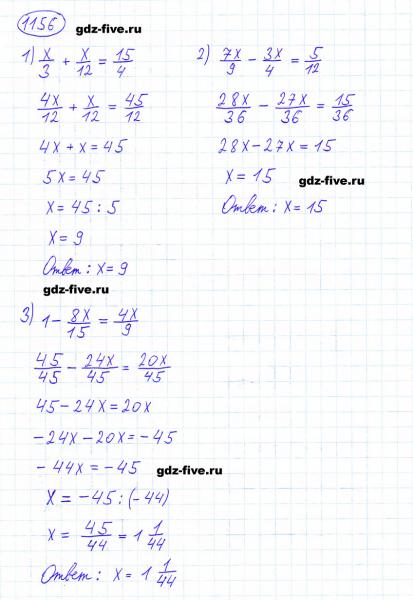 1156 gdz-five.ru
1) x/3 + x/12 = 15/4
4x/12 + x/12 = 45/12
4x + x = 45
5x = 45
x = 45 : 5
x = 9
Ответ: x = 9
gdz-five.ru
2) 7x/9 - 3x/4 = 5/12
28x/36 - 27x/36 = 15/36
28x - 27x = 15
x = 15
gdz-five.ru
Ответ: x = 15
3) 1 - 8x/15 = 4x/9
45/45 - 24x/45 = 20x/45
45 - 24x = 20x
-24x - 20x = -45
-44x = -45 gdz-five.ru
x = -45 : (-44)
x = 45/44 = 1 1/44
Ответ: x = 1 1/44